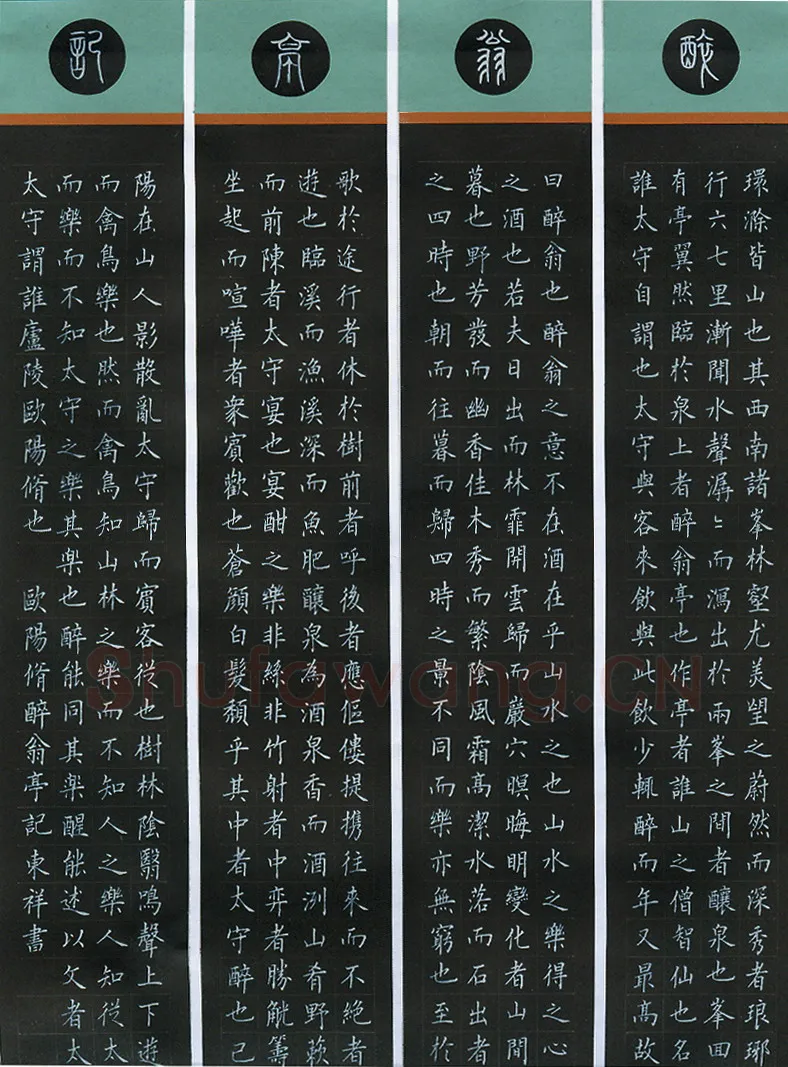 醉
環滁皆山也其西南諸峯林壑尤美望之蔚然而深秀者琅琊
行六七里漸聞水聲潺〻而瀉出於兩峯之間者釀泉也峯回
有亭翼然臨於泉上者醉翁亭也作亭者誰山之僧智仙也名
誰太守自謂也太守與客來飲與此飲少輒醉而年又最高故
翁
曰醉翁也醉翁之意不在酒在乎山水之也山水之樂得之心
之酒也若夫日出而林霏開雲歸而巖穴暝晦明變化者山間
暮也野芳發而幽香佳木秀而繁陰風霜高潔水落而石出者
之四時也朝而往暮而歸四時之景不同而樂亦無窮也至於
亭
歌於途行者休於樹前者呼後者應傴僂提携往來而不絶者
遊也臨溪而漁溪深而魚肥釀泉為酒泉香而酒洌山肴野蔌
而前陳者太守宴也宴酣之樂非絲非竹射者中弈者勝觥籌
坐起而喧嘩者衆賓歡也蒼顔白髮頹乎其中者太守醉也已
記
陽在山人影散亂太守歸而賓客從也樹林陰翳鳴聲上下遊
而禽鳥樂也然而禽鳥知山林之樂而不知人之樂人知從太
而樂而不知太守之樂其樂也醉能同其樂醒能述以文者太
太守謂誰廬陵歐陽脩也 歐陽脩醉翁亭記東祥書
Shufawang.CN